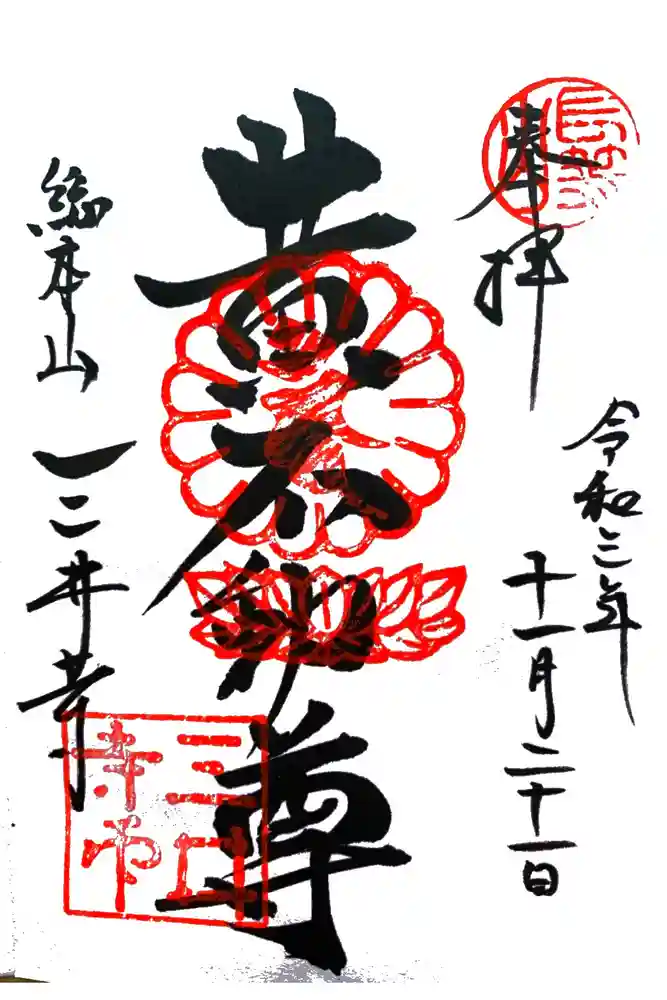 奉拝
令和三年
十一月二十一日
黄不動尊
総本山 三井寺
三井
寺印